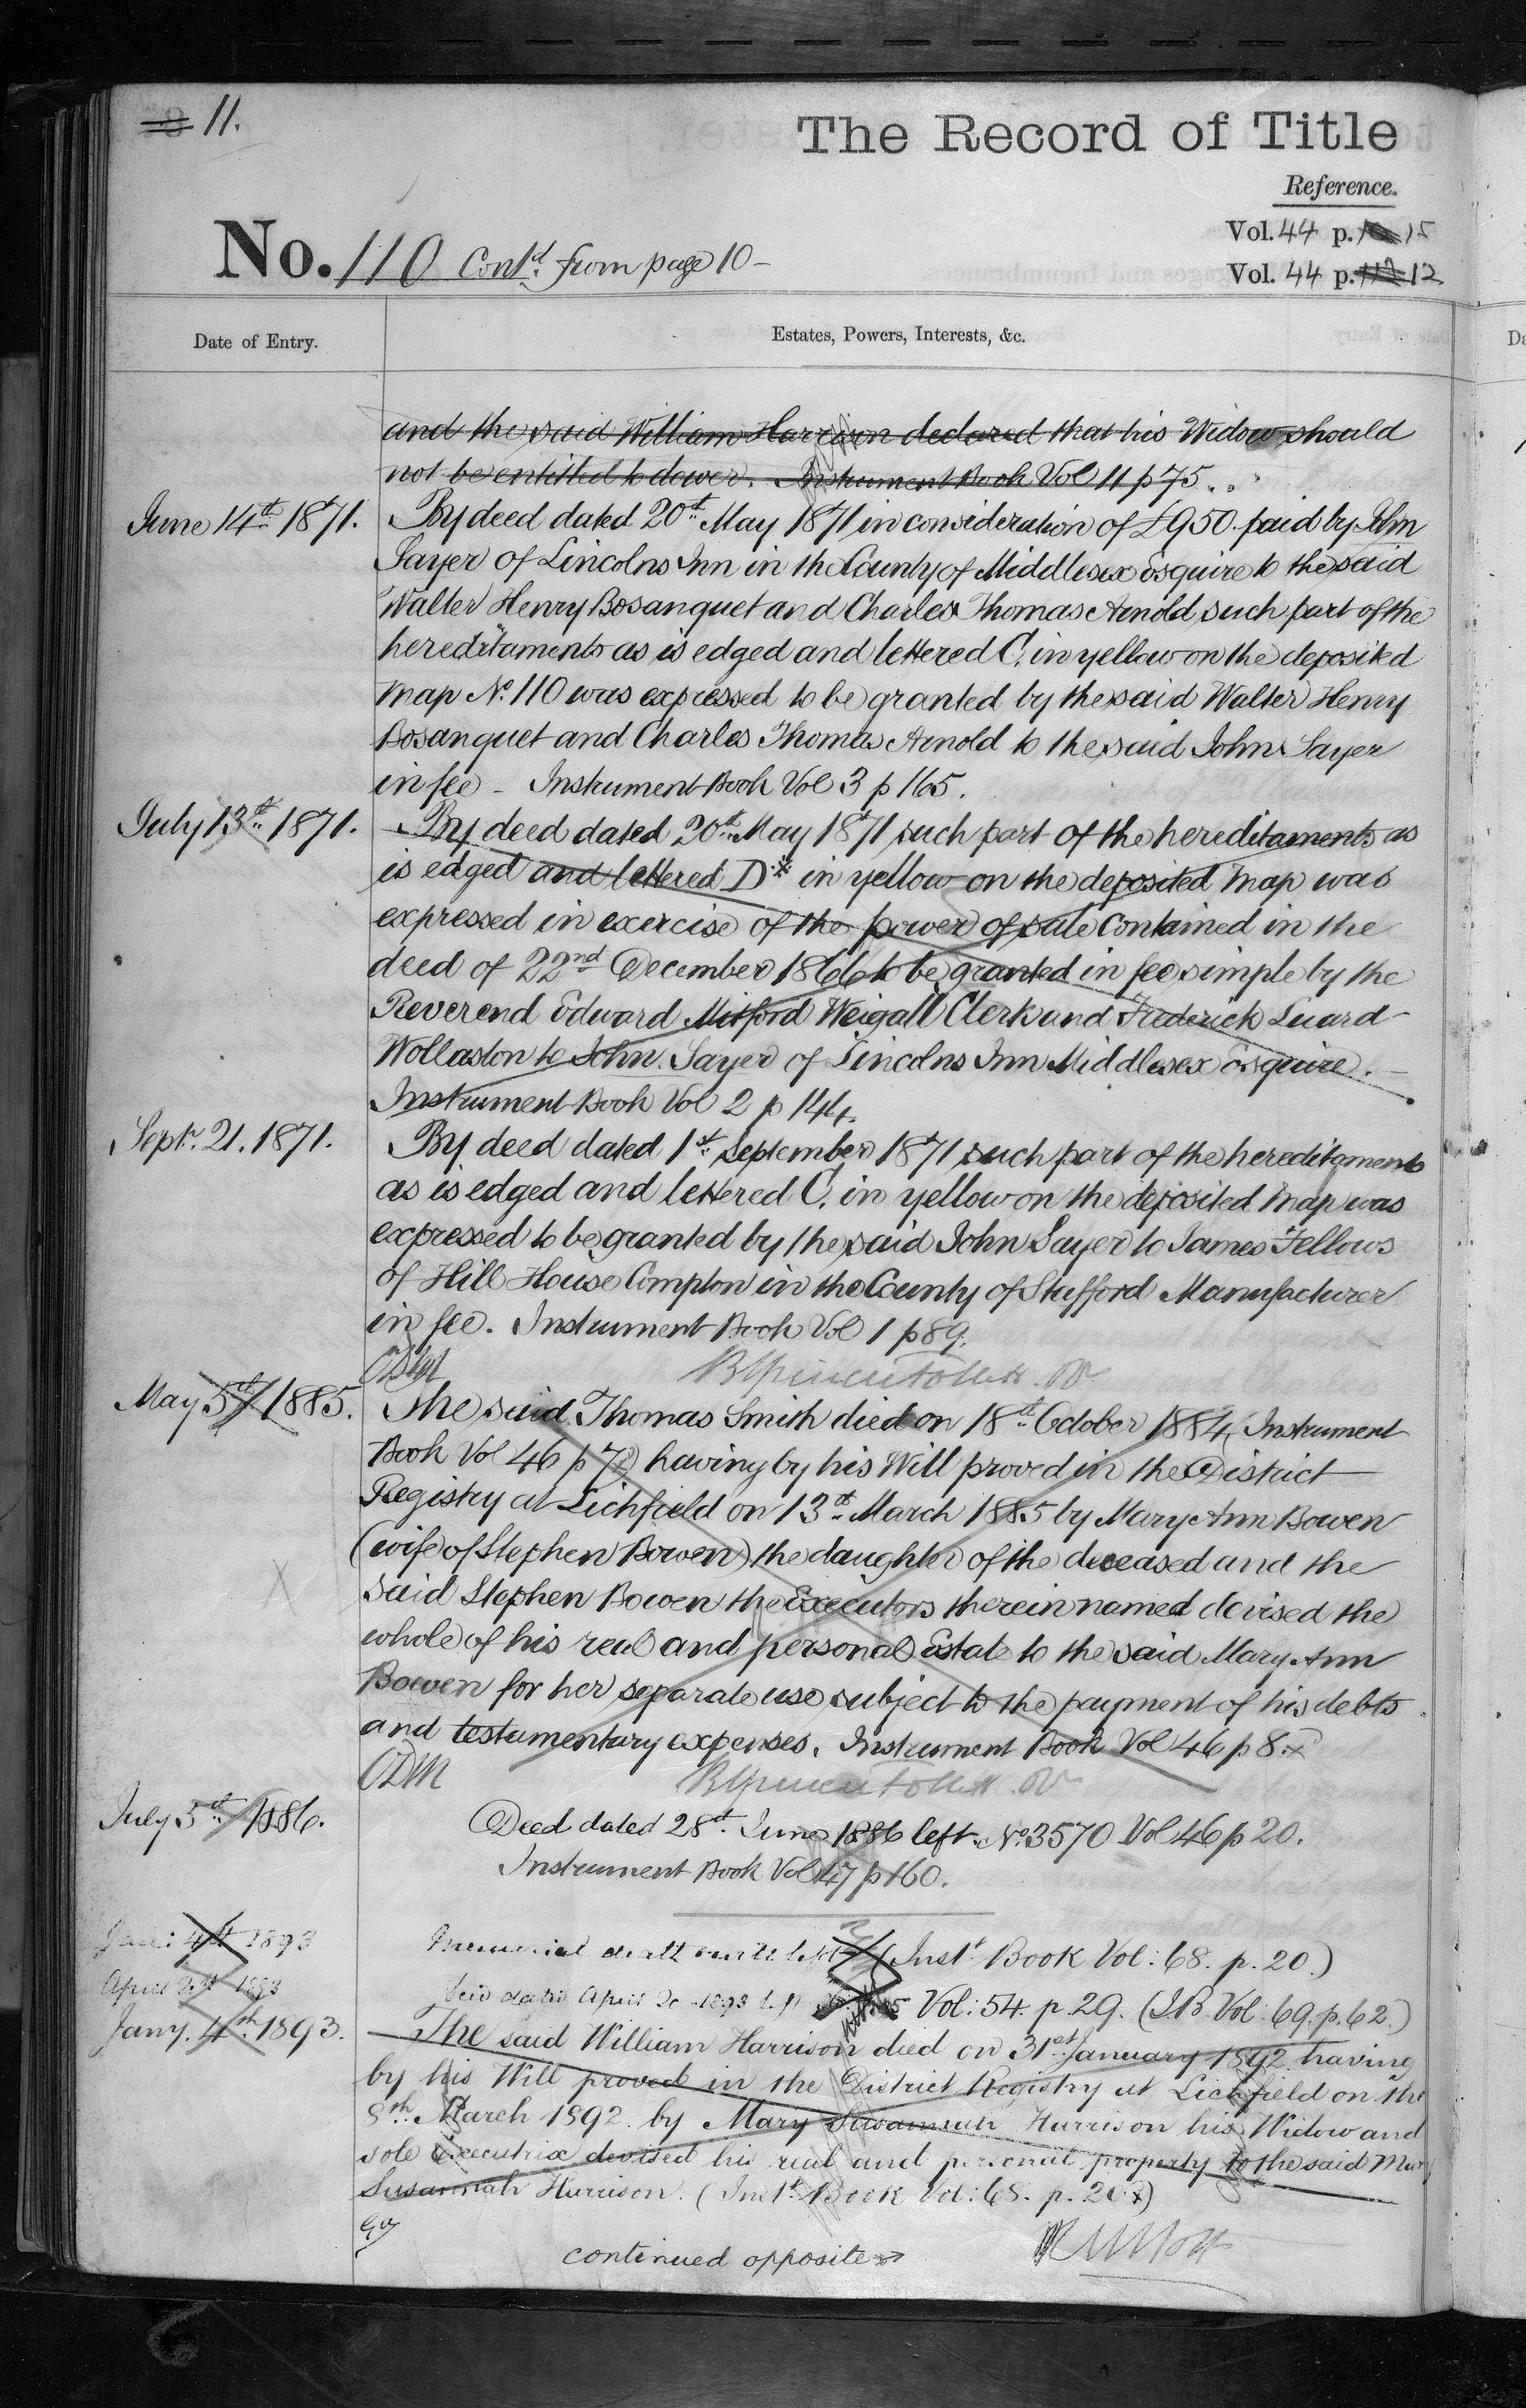 11.
The Record of Title
Reference.
Vol. 44 p. 15
No. 110 Contd. from page 10 -
Vol. 44 p. 12
Date of Entry.
Estates, Powers, Interests, &c.
and the said William Harrison declared that his Widow should
not be entitled to dower. Instrument Book Vol 11 p 75.
June 14th 1871.
By deed dated 20th May 1871 in consideration of £950 paid by John
Sayer of Lincolns Inn in the County of Middlesex Esquire to the said
Walter Henry Bosanquet and Charles Thomas Arnold such part of the
hereditaments as is edged and lettered C. in yellow on the deposited
Map No. 110 was expressed to be granted by the said Walter Henry
Bosanquet and Charles Thomas Arnold to the said John Sayer
in fee - Instrument Book Vol 3 p 165.
July 13th 1871.
By deed dated 20th May 1871 such part of the hereditaments as
is edged and lettered D* in yellow on the deposited Map was
expressed in exercise of the power of sale contained in the
deed of 22nd December 1866 to be granted in fee simple by the
Reverend Edward Mitford Weigall Clerk and Frederick Luard
Wollaston to John Sayer of Lincolns Inn Middlesex Esquire. -
Instrument Book Vol 2 p 144.
Sept. 21. 1871.
By deed dated 1st September 1871 such part of the hereditaments
as is edged and lettered C. in yellow on the deposited Map was
expressed to be granted by the said John Sayer to James Fellows
of Hill House Compton in the County of Stafford Manufacturer
in fee. Instrument Book Vol 1 p 89.
May 5th 1885.
The said Thomas Smith died on 18th October 1884, (Instrument
Book Vol 46 p 7) having by his Will proved in the District
Registry at Lichfield on 13th March 1885 by Mary Ann Bowen
(wife of Stephen Bowen) the daughter of the deceased and the
X
said Stephen Bowen the Executors therein named devised the
whole of his real and personal Estate to the said Mary Ann
Bowen for her separate use subject to the payment of his debts
and testamentary expenses. Instrument Book Vol 46 p 8.
July 5th 1886.
Deed dated 28th June 1886 left. No. 3570 Vol 46 p 20.
Instrument Book Vol 47 p 160.
Jan: 4th 1893
Memorial death (Inst. Book Vol: 68. p. 20.)
April 1893
April 1893 Vol: 54. p. 29. (I.B. Vol: 69. p. 62.)
Jany. 4th 1893.
The said William Harrison died on 31st January 1892 having
by his Will proved in the District Registry at Lichfield on the
8th March 1892 by Mary Susannah Harrison his Widow and
sole Executrix devised his real and personal property to the said Mary
Susannah Harrison. (Inst. Book Vol: 68. p. 20)
continued opposite